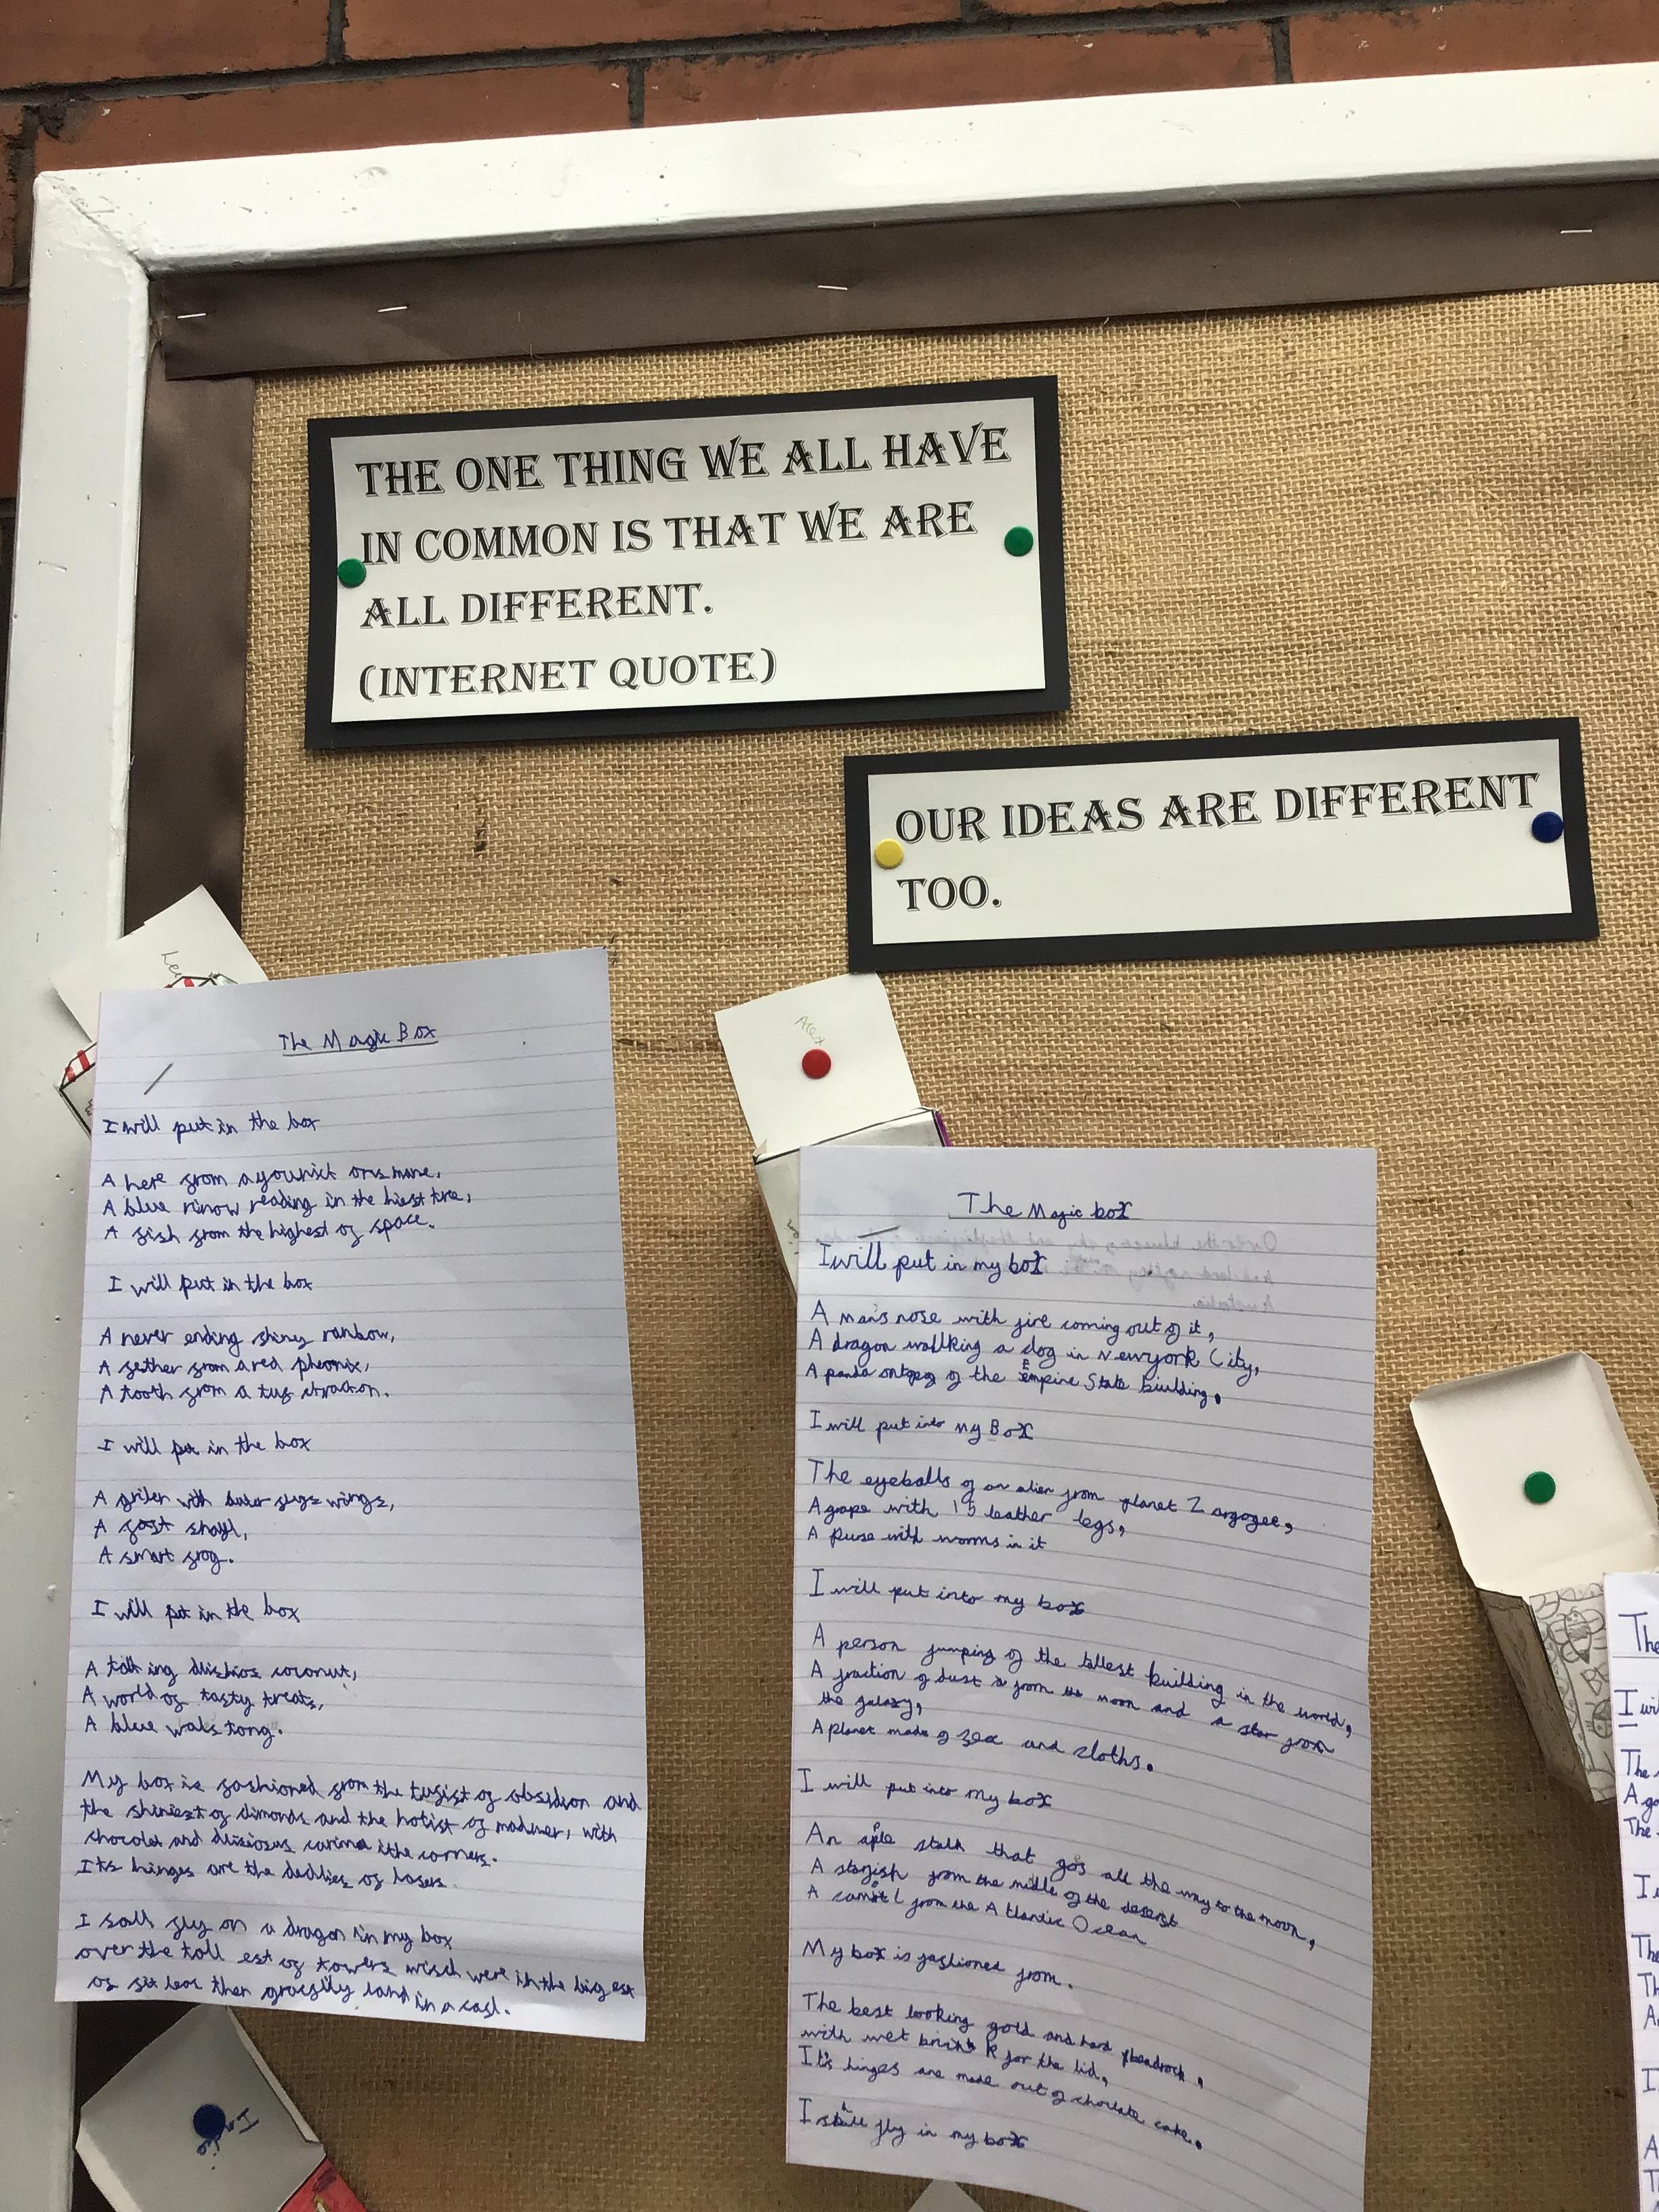 THE ONE THING WE ALL HAVE
IN COMMON IS THAT WE ARE
ALL DIFFERENT.
(INTERNET QUOTE)
OUR IDEAS ARE DIFFERENT
TOO.
The Magic Box
I will put in the box
A here from a younick oris mane,
A blue rinow reading in the hiest tree,
A fish from the highest of space.
I will put in the box
A never ending shiny ranbow,
A fether from a red pheonix,
A tooth from a
I will put in the box
A with wings,
A fast
A smart frog.
I will put in the box
A talking coconut,
A world of tasty treats,
A blue
My box is fashioned from the tufist of obsidion and
the shiniest of dimonds and the hotist of with
and corners.
Its hinges are the of lasers.
I fly on a dragon in my box
over the tall est of towers were in the big est
of then land in a
Alex
The Magic box
I will put in my box
A man's nose with fire coming out of it,
A dragon wallking a dog in Newyork City,
A panda of the Empire State building.
I will put into my Box
The eyeballs of an alien from planet Z argogee,
A grape with 15 leather legs,
A purse with worms in it
I will put into my box
A person jumping of the tallest building in the world,
A fraction of dust from the moon and a star from
the galaxy,
A planet made of and sloths.
I will put into my box
An aple stalk that gos all the way to the moon,
A starfish from the middle of the desert
A from the Atlantic Ocean
My box is fashioned from.
The best looking gold and hard
with wet for the lid,
It's hinges are made out of choclate cake.
I fly in my box
The
I wi
The
A go
The